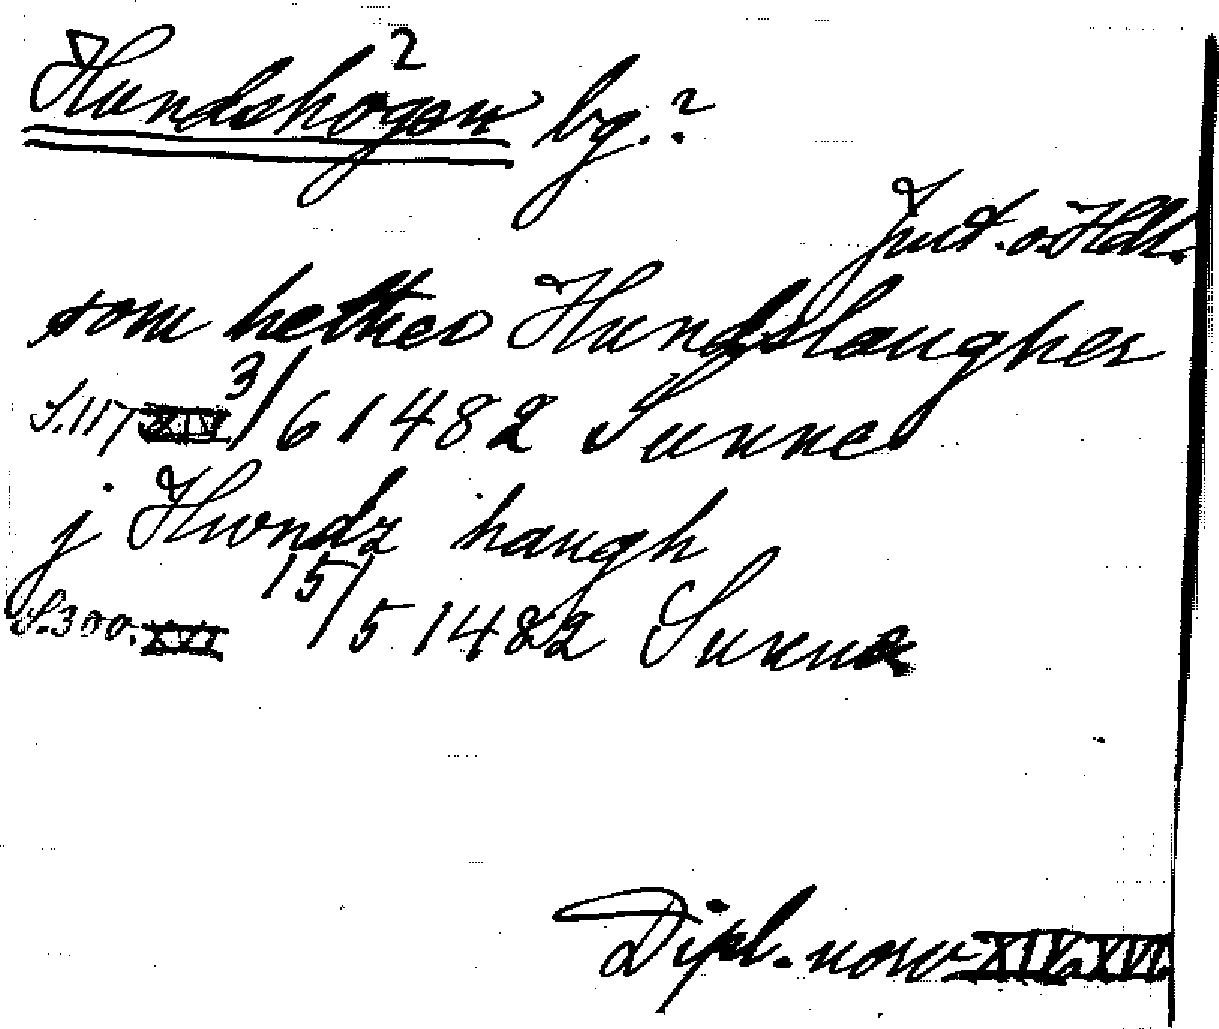 2
Hundshögen bg.?
Jmt. o. Hdl.
som hether Hundslaugher
S. 117 XIV 3/6 1482 Sunne
j Hwndz haugh
S. 300. XVI 15/5 1482 Sunne
Dipl. norv XIV, XVI.